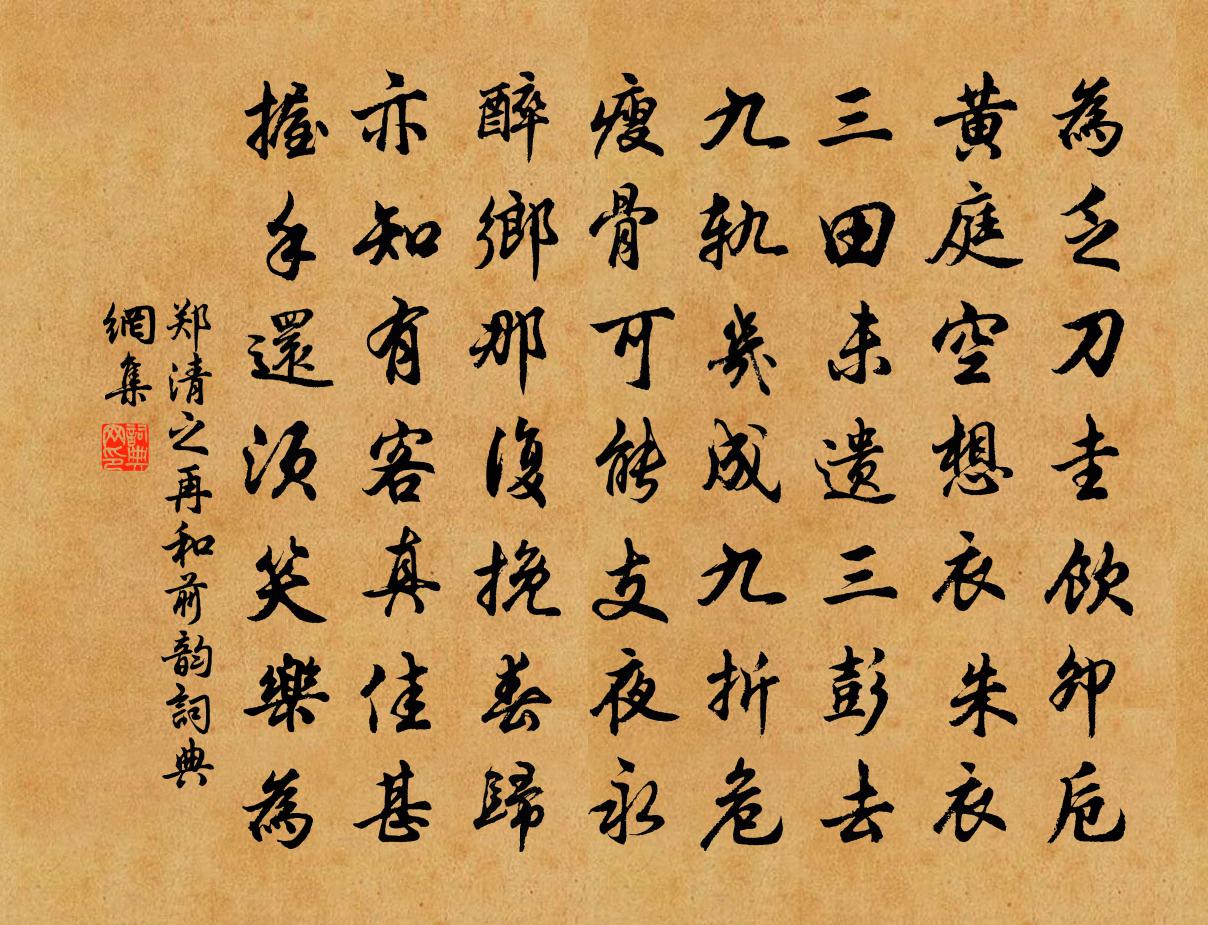 為乏刀圭飲卯卮
黃庭空想衣朱衣
三田未遺三彭去
九軌幾成九折危
瘦骨可能支夜永
醉鄉那復挽春歸
亦知有客真佳甚
握手還須笑樂為
郑清之再和前韵詞典
網集
詞典網印